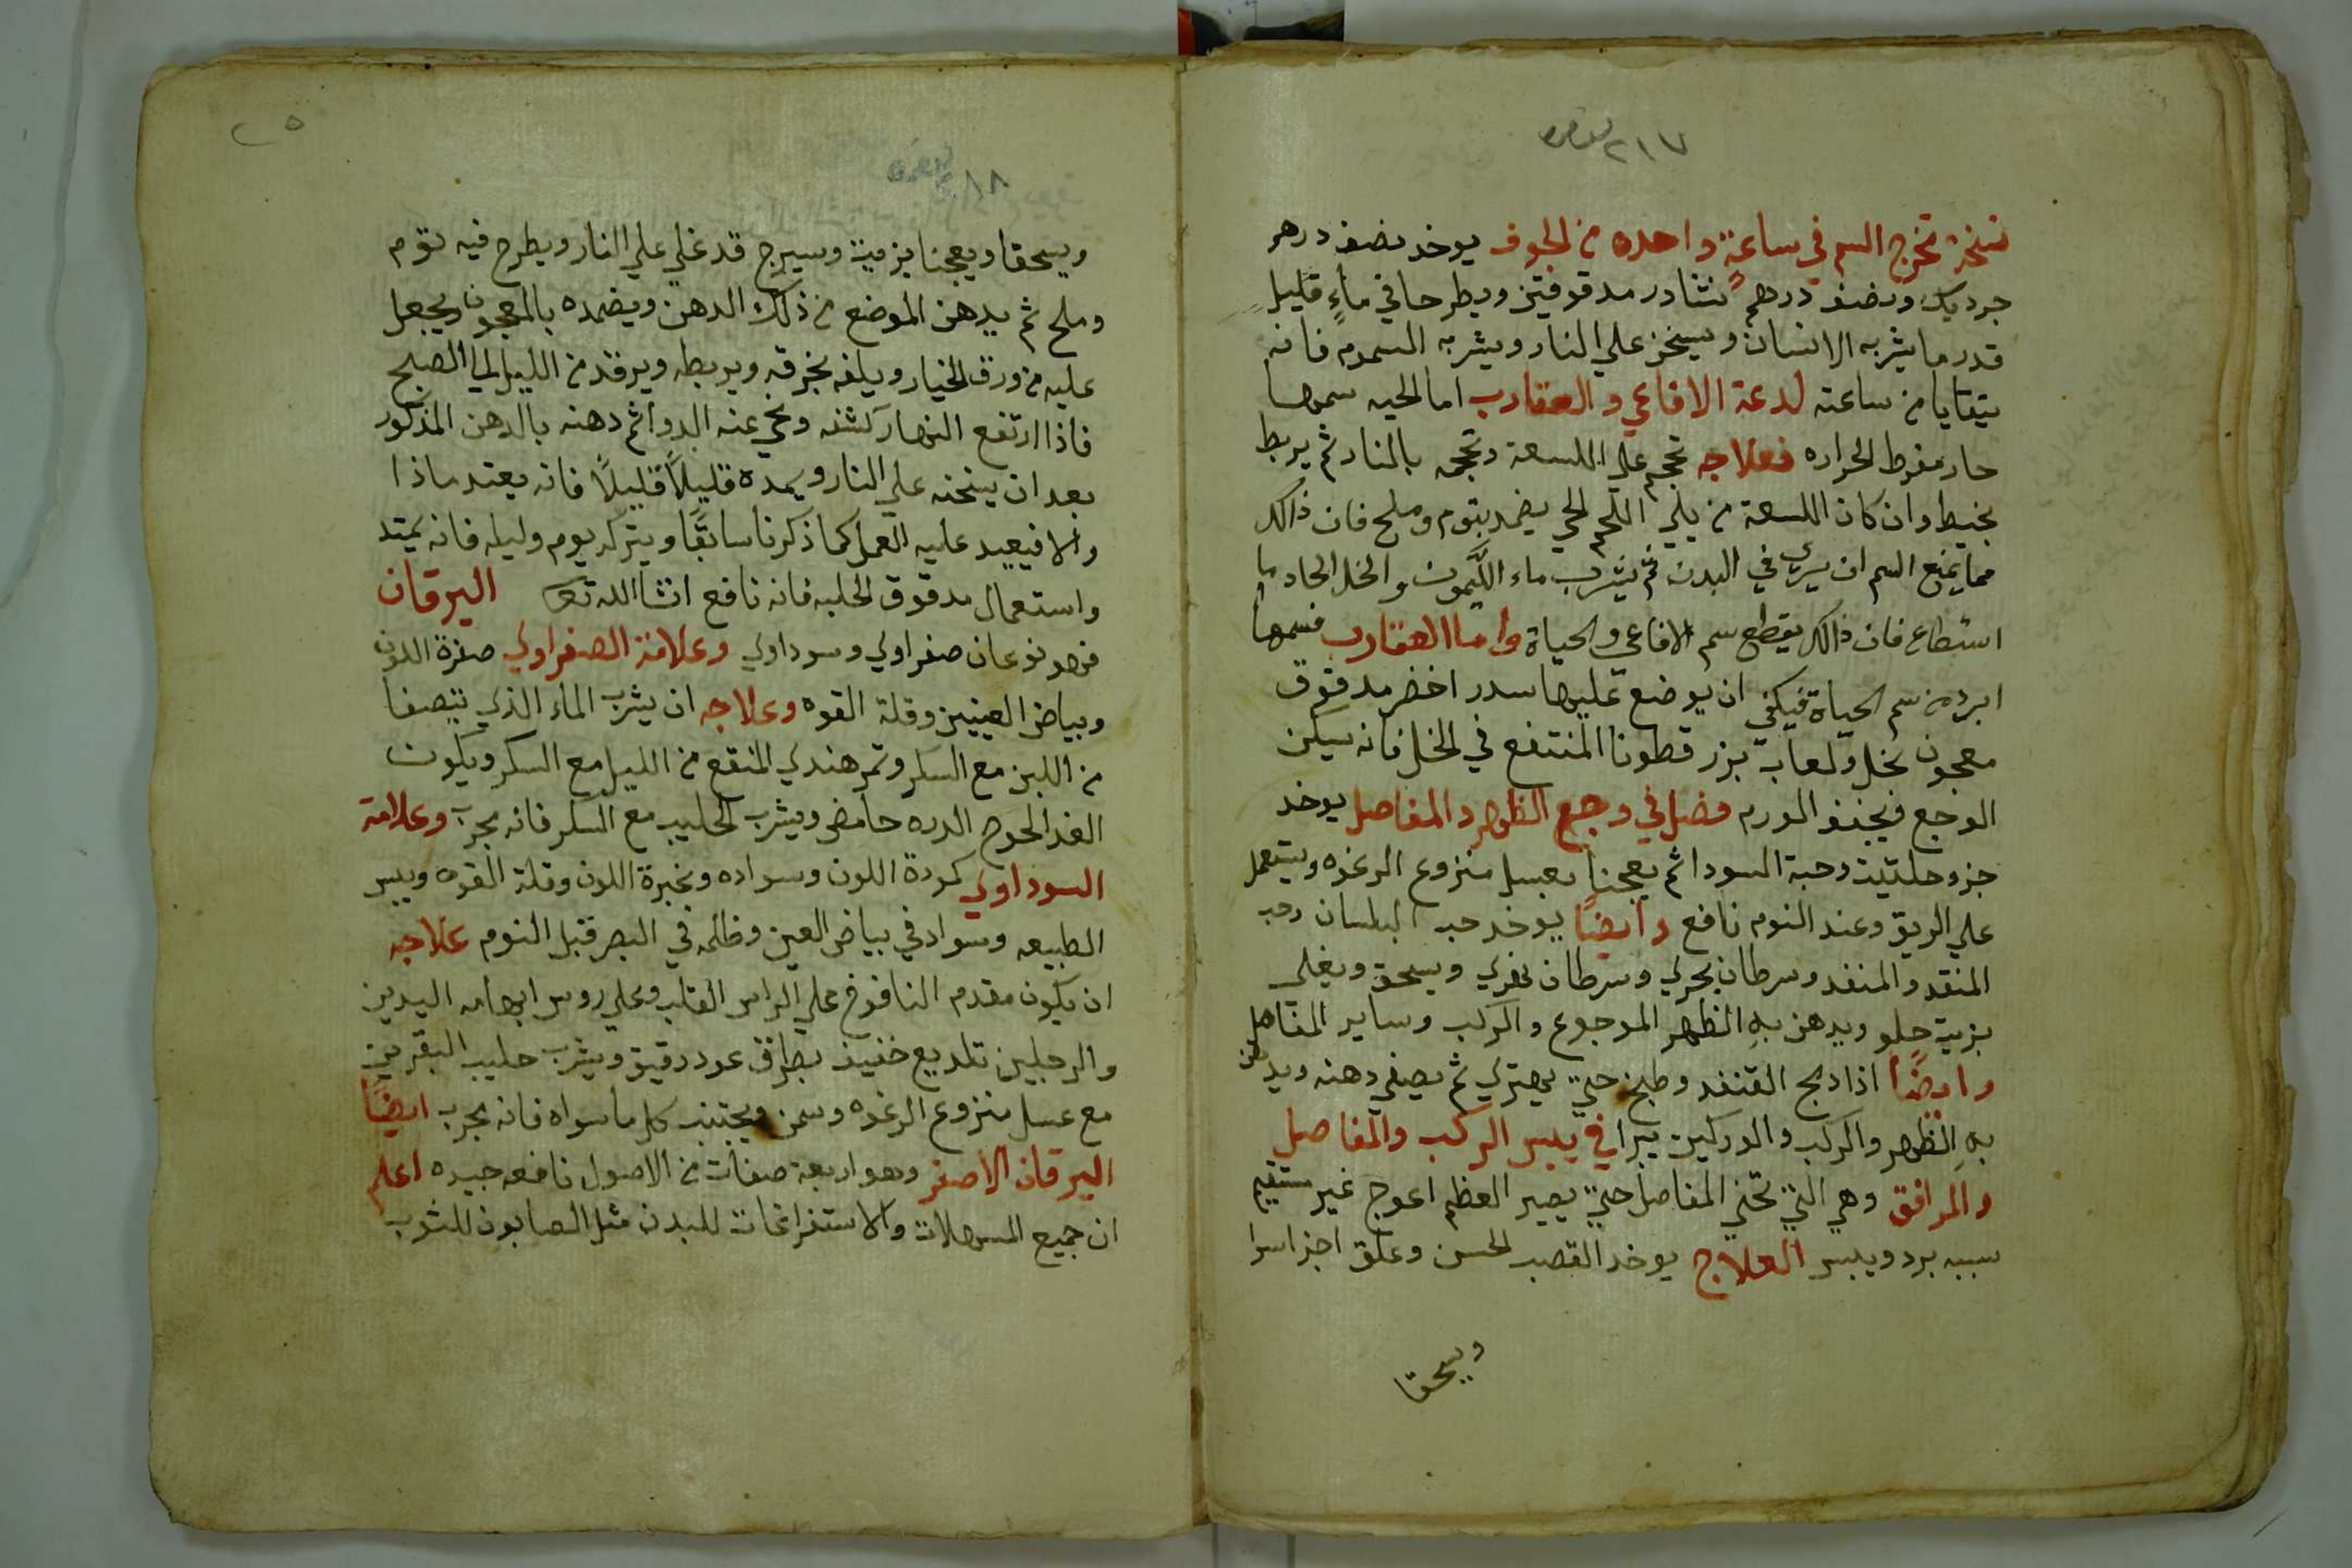 ٢١٧
نسخة تخرج السم في ساعةٍ واحده من الجوف يوخد نصف درهم
جرديك ونصف درهم نشادر مدقوقتين ويطرحا في ماءٍ قليل
قدر ما يشربه الانسان ويسخن علي النار ويشربه المسموم فانه
يتقايا من ساعته لدعة الافاعي والعقارب اما الحيه سمها
حار مفرط الحراره فعلاجه تحجم علي اللسعة وتحجمه بالنار ثم يربط
بخيط وان كان اللسعة من يلي اللحم الحي يضمد بتوم وملح فان ذالك
مما يمنع السم ان يسري في البدن ثم يشرب ماء الليمون والخل الحاد ما
استطاع فان ذالك يقطع سم الافاعي والحياة واما العقارب فسمها
ابرد من سم الحياة فيكفي ان يوضع عليها سدر اخضر مدقوق
معجون بخل ولعاب بزر قطونا المنتقع في الخل فانه يسكن
الوجع ويجفف الورم فصل في وجع الظهر والمفاصل يوخد
جزو حلتيت وحبة السودا ثم يعجنا بعسل منزوع الرغوه ويستعمل
علي الريق وعند النوم نافع وايضًا يوخد حب البلسان وحب
المنقد والمنفد وسرطان بحري وسرطان نهري ويسحق ويغلي
بزيت حلو ويدهن بهِ الظهر الموجوع والركب وساير المفاصل
وايضًا اذا دبح القنفد وطبخ حتي يهتري ثم يصفي دهنه ويدهن
بهِ الظهر والركب والوركين يبرا في يبس الركب والمفاصل
والمرافق وهي التي تحني المفاصل حتي يصير العظم اعوج غير مستقيم
سببه برد ويبس العلاج يوخد القصب الحسن وعلق اجزا سوا
ويسحقا
٢٥
٢١٨
ويسحقا ويعجنا بزيت وسيرج قد غلي علي النار ويطرح فيه توم
وملح ثم يدهن الموضع من ذلك الدهن ويضمده بالمعجون ويجعل
عليه من ورق الخيار ويلفه بخرقه ويربطه ويرقد من الليل الي الصبح
فاذا ارتفع النهار كشفه ونحي عنه الدوا ثم دهنه بالدهن المذكور
بعد ان يسخنه علي النار ويمده قليلًا قليلًا فانه يمتد ماذا
والا فيعيد عليه العمل كما ذكرنا سابقًا ويتركه يوم وليله فانه يمتد
واستعمال مدقوق الحلبه فانه نافع انشاالله تع اليرقان
فهو نوعان صفراوي وسوداوي وعلامة الصفراوي صفرة اللون
وبياض العينين وقلة القوه وعلاجه ان يشرب الماء الذي يتصفا
من اللبن مع السكر وتمر هندي المنقع من الليل مع السكر ويكون
الغدا لحوح الدره حامض ويشرب الحليب مع السكر فانه مجرب وعلامة
السوداوي كمودة اللون وسواده وغبرة اللون وقلة القوه ويبس
الطبيعه وسواد في بياض العين وظلمه في البصر قبل النوم علاجه
ان يكون مقدم النافوخ علي الراس القلب وعلي روس ابهامه اليدين
والرجلين تلديع خفيف بطرف عود رقيق ويشرب حليب البقر
مع عسل منزوع الرغوه وسمن ويجتنب كل ما سواه فانه مجرب ايضًا
اليرقان الاصفر وهو اربعة صفات من الاصول نافعه جيده اعلم
ان جميع المسهلات والاستفراغات للبدن مثل الصابون للثوب